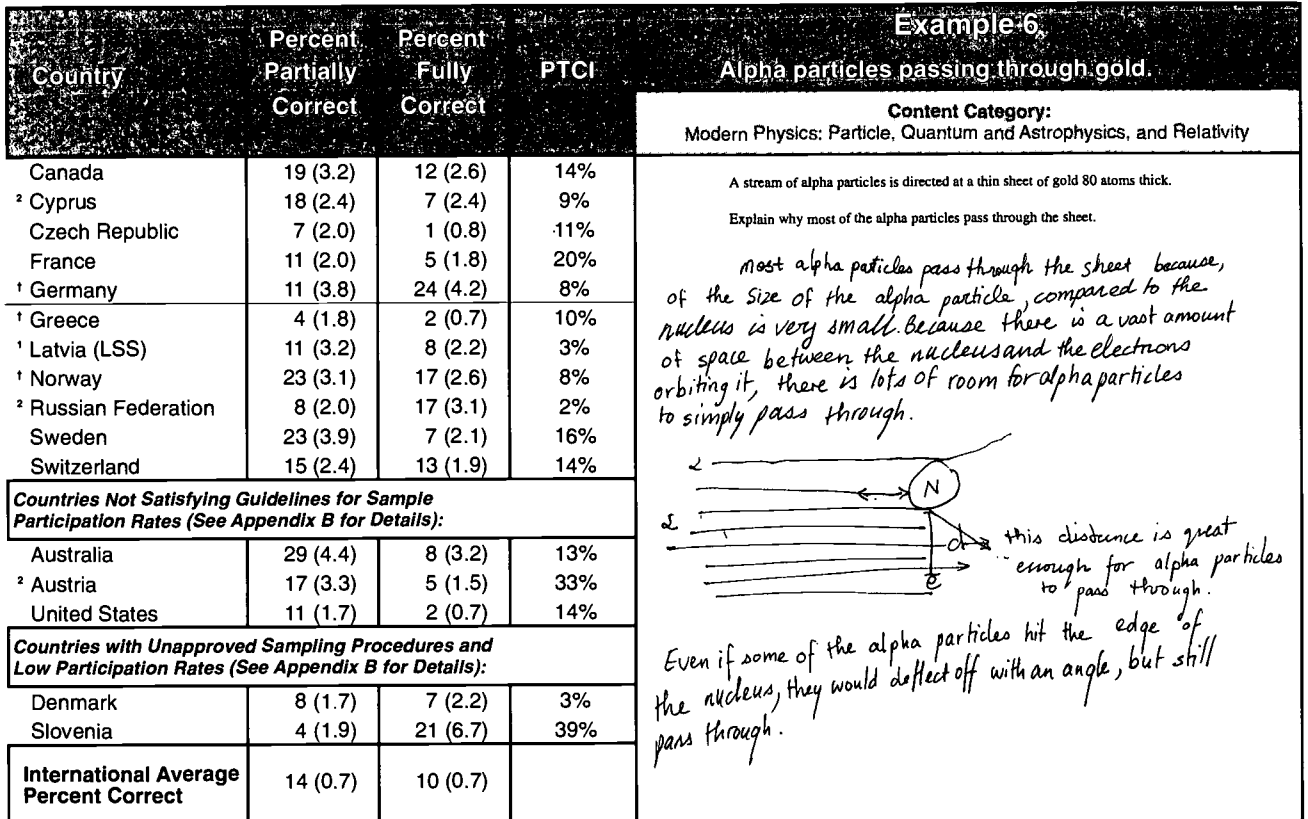 Country Percent Partially Correct Percent Fully Correct PTCI
Example 6
Alpha particles passing through gold.
Content Category:
Modern Physics: Particle, Quantum and Astrophysics, and Relativity
Canada 19 (3.2) 12 (2.6) 14%
² Cyprus 18 (2.4) 7 (2.4) 9%
Czech Republic 7 (2.0) 1 (0.8) 11%
France 11 (2.0) 5 (1.8) 20%
† Germany 11 (3.8) 24 (4.2) 8%
† Greece 4 (1.8) 2 (0.7) 10%
¹ Latvia (LSS) 11 (3.2) 8 (2.2) 3%
† Norway 23 (3.1) 17 (2.6) 8%
² Russian Federation 8 (2.0) 17 (3.1) 2%
Sweden 23 (3.9) 7 (2.1) 16%
Switzerland 15 (2.4) 13 (1.9) 14%
Countries Not Satisfying Guidelines for Sample
Participation Rates (See Appendix B for Details):
Australia 29 (4.4) 8 (3.2) 13%
² Austria 17 (3.3) 5 (1.5) 33%
United States 11 (1.7) 2 (0.7) 14%
Countries with Unapproved Sampling Procedures and
Low Participation Rates (See Appendix B for Details):
Denmark 8 (1.7) 7 (2.2) 3%
Slovenia 4 (1.9) 21 (6.7) 39%
International Average
Percent Correct 14 (0.7) 10 (0.7)
A stream of alpha particles is directed at a thin sheet of gold 80 atoms thick.
Explain why most of the alpha particles pass through the sheet.
most alpha paticles pass through the sheet because,
of the size of the alpha particle, compared to the
nucleus is very small. Because there is a vast amount
of space between the nucleus and the electrons
orbiting it, there is lots of room for alpha particles
to simply pass through.
α
N
α
d this distance is great
enough for alpha particles
e to pass through.
Even if some of the alpha particles hit the edge of
the nucleus, they would deflect off with an angle, but still
pass through.